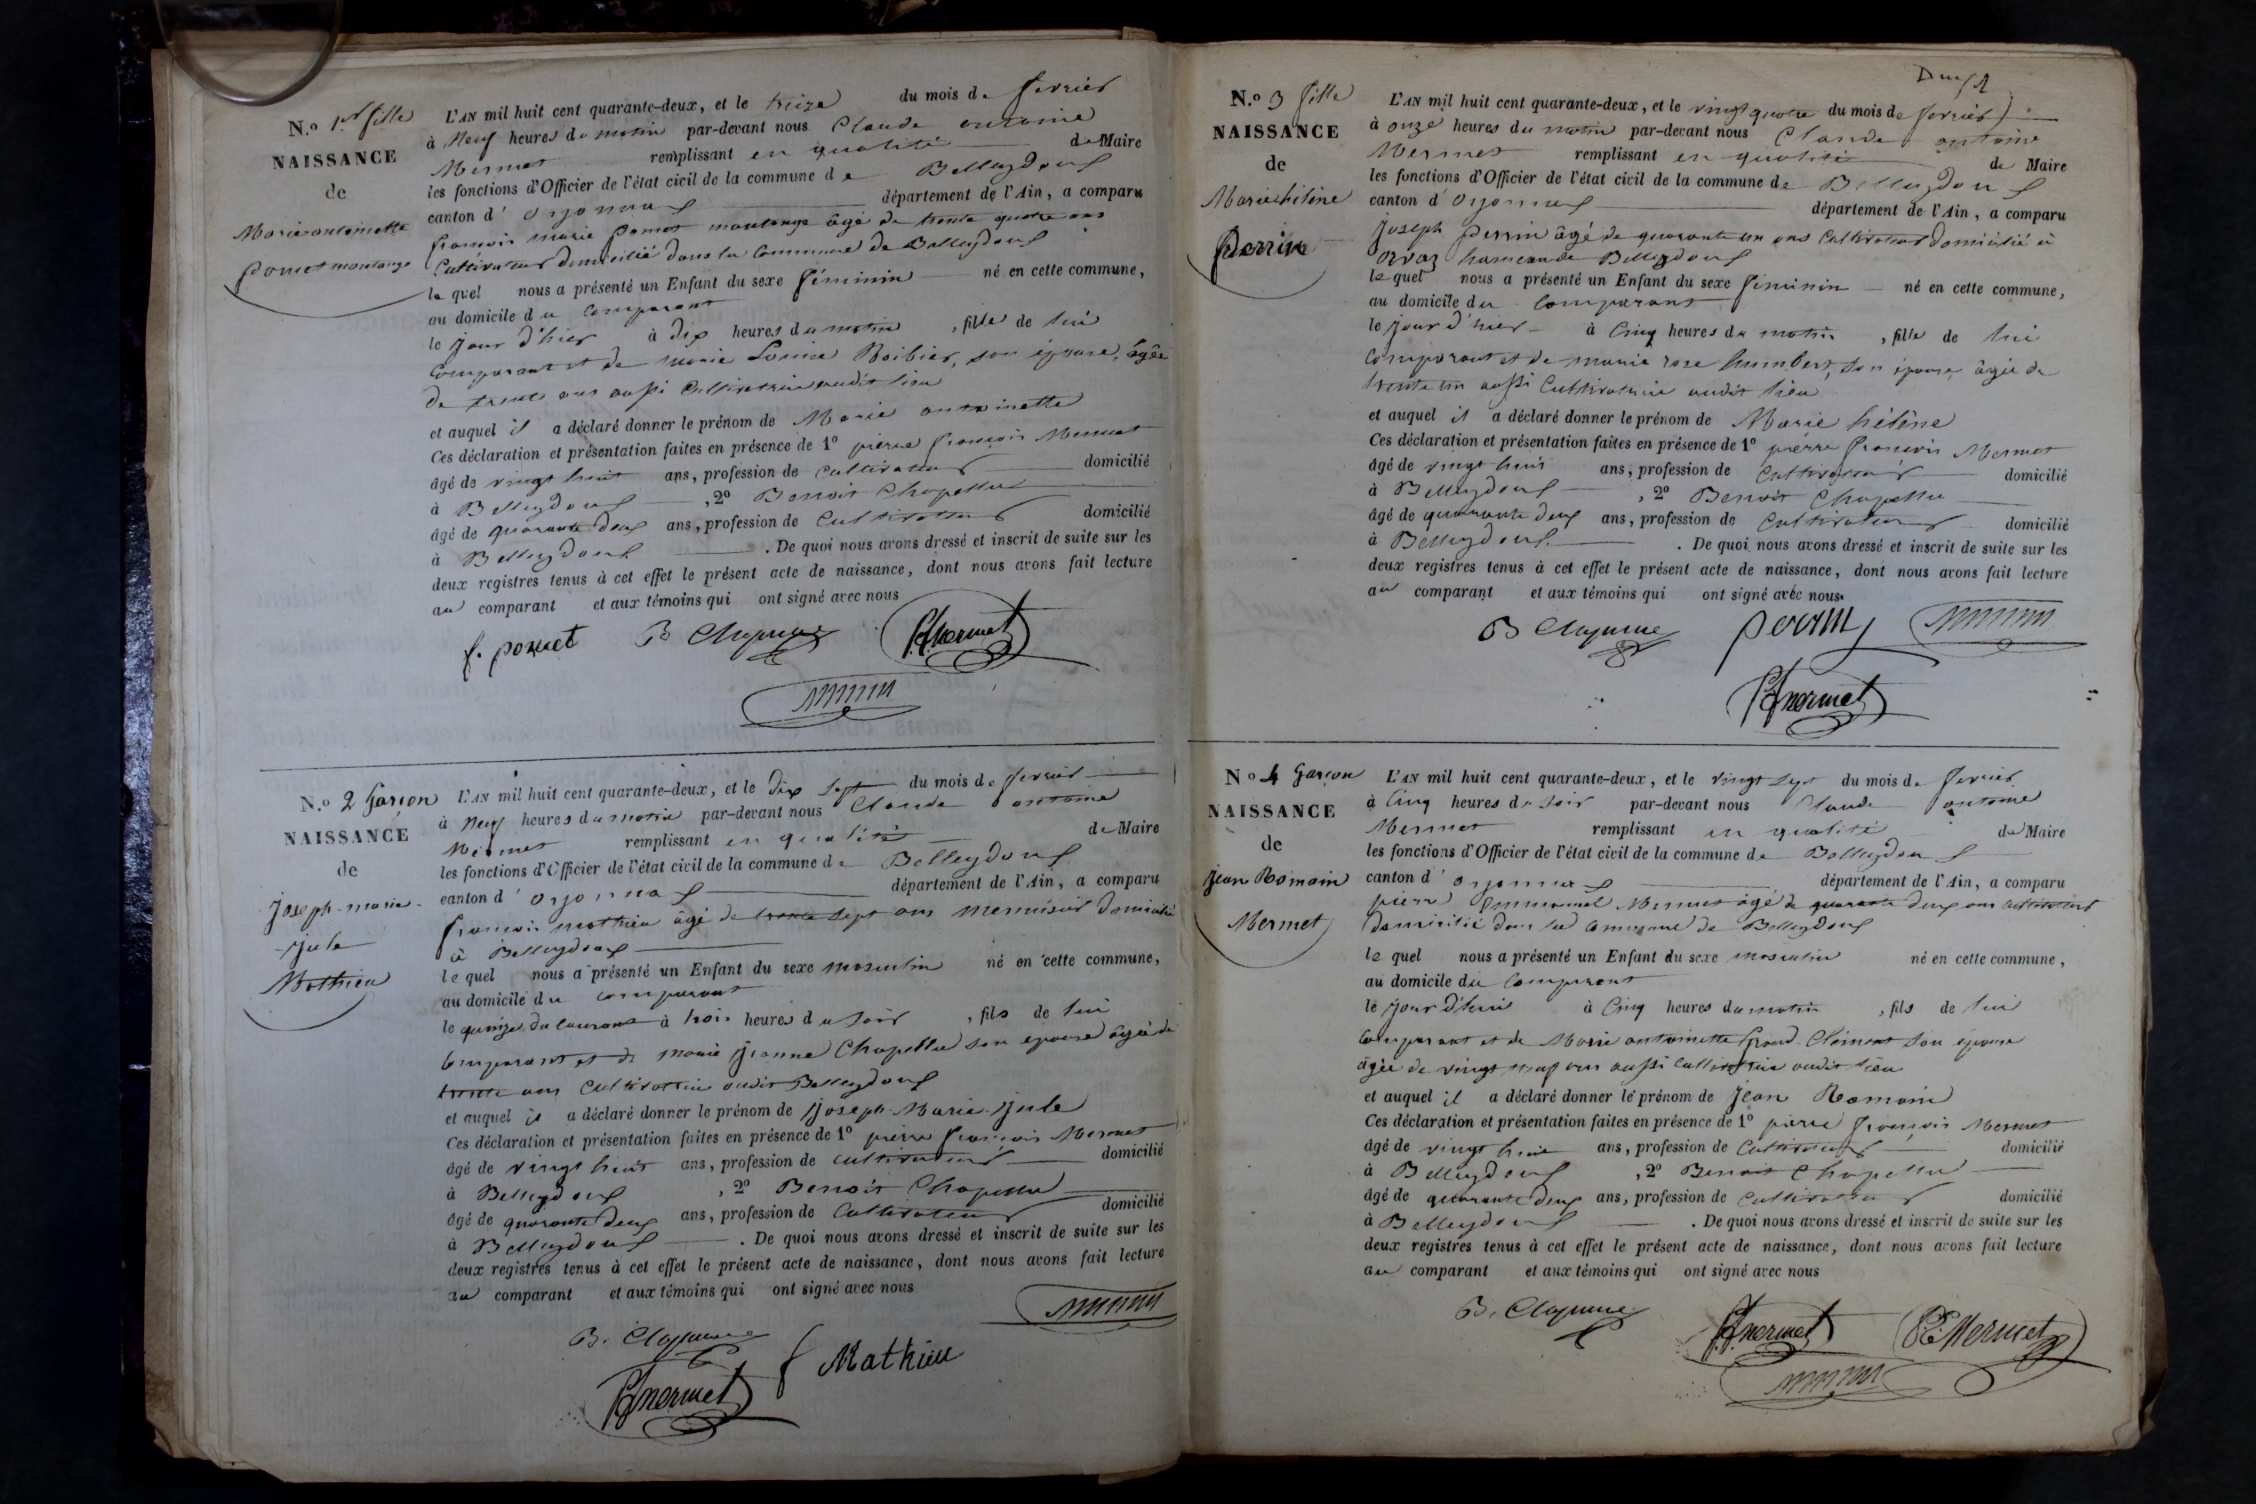 N.o 1re fille
NAISSANCE
de
Marie antoinette
poncet montange
L'AN mil huit cent quarante-deux, et le treize du mois de fevrier
à Neuf heures du matin par-devant nous Claude antoine
Mermet remplissant en qualité de Maire
les fonctions d'Officier de l'état civil de la commune de Belleydoux
canton d'oyonnax département de l'Ain, a comparu
françois marie poncet montange âgé de trente quatre ans
Cultivateur domicilié dans la Commune de Belleydoux
lequel nous a présenté un Enfant du sexe féminin né en cette commune,
au domicile du Comparant
le jour d'hier à dix heures du matin, fille de lui
Comparant et de marie Louise Boibier, son épouse, âgée
de trente ans aussi Cultivatrice audit lieu
et auquel il a déclaré donner le prénom de Marie antoinette
Ces déclaration et présentation faites en présence de 1o pierre françois Mermet
âgé de vingt huit ans, profession de Cultivateur domicilié
à Belleydoux, 2o Benoit Chapellu
âgé de quarante deux ans, profession de Cultivateur domicilié
à Belleydoux. De quoi nous avons dressé et inscrit de suite sur les
deux registres tenus à cet effet le présent acte de naissance, dont nous avons fait lecture
au comparant et aux témoins qui ont signé avec nous
f. poncet
P.f. mermet
N.o 2 Garçon
NAISSANCE
de
Joseph-marie-
Jule
Mathieu
L'AN mil huit cent quarante-deux, et le dix sept du mois de fevrier
à Neuf heures du matin par-devant nous Claude antoine
Mermet remplissant en qualité de Maire
les fonctions d'Officier de l'état civil de la commune de Belleydoux
canton d'oyonnax département de l'Ain, a comparu
françois mathieu âgé de trente sept ans Menuisier domicilié
à Belleydoux
lequel nous a présenté un Enfant du sexe masculin né en cette commune,
au domicile du comparant
le quinze du courant à trois heures du soir, fils de lui
Comparant et de marie Jeanne Chapellu son épouse âgée de
trente ans Cultivatrice audit Belleydoux
et auquel il a déclaré donner le prénom de Joseph-Marie-Jule
Ces déclaration et présentation faites en présence de 1o pierre françois Mermet
âgé de vingt huit ans, profession de cultivateur domicilié
à Belleydoux, 2o Benoit Chapellu
âgé de quarante deux ans, profession de Cultivateur domicilié
à Belleydoux. De quoi nous avons dressé et inscrit de suite sur les
deux registres tenus à cet effet le présent acte de naissance, dont nous avons fait lecture
au comparant et aux témoins qui ont signé avec nous
f Mathieu
P.f. mermet
N.o 3 fille
NAISSANCE
de
Marie hélène
perrin
L'AN mil huit cent quarante-deux, et le vingt quatre du mois de fevrier
à onze heures du matin par-devant nous Claude antoine
Mermet remplissant en qualité de Maire
les fonctions d'Officier de l'état civil de la commune de Belleydoux
canton d'oyonnax département de l'Ain, a comparu
Joseph perrin âgé de quarante un ans Cultivateur domicilié à
orvaz hameau de Belleydoux
lequel nous a présenté un Enfant du sexe féminin né en cette commune,
au domicile du Comparant
le jour d'hier à Cinq heures du matin, fille de lui
Comparant et de marie rose humbert, son épouse, âgée de
trente un aussi Cultivatrice audit lieu
et auquel il a déclaré donner le prénom de Marie hélène
Ces déclaration et présentation faites en présence de 1o pierre françois Mermet
âgé de vingt huit ans, profession de Cultivateur domicilié
à Belleydoux, 2o Benoit Chapellu
âgé de quarante deux ans, profession de Cultivateur domicilié
à Belleydoux. De quoi nous avons dressé et inscrit de suite sur les
deux registres tenus à cet effet le présent acte de naissance, dont nous avons fait lecture
au comparant et aux témoins qui ont signé avec nous.
perrin
P.f. mermet
No 4 Garçon
NAISSANCE
de
Jean Romain
Mermet
L'AN mil huit cent quarante-deux, et le vingt sept du mois de fevrier
à Cinq heures du soir par-devant nous Claude antoine
Mermet remplissant en qualité de Maire
les fonctions d'Officier de l'état civil de la commune de Belleydoux
canton d'oyonnax département de l'Ain, a comparu
pierre Emmanuel Mermet âgé de quarante deux ans Cultivateur
domicilié dans la Commune de Belleydoux
lequel nous a présenté un Enfant du sexe masculin né en cette commune,
au domicile du Comparant
le jour d'hui à Cinq heures du matin, fils de lui
Comparant et de Marie antoinette Grand-Clément son épouse
âgée de vingt neuf ans aussi Cultivatrice audit lieu
et auquel il a déclaré donner le prénom de Jean Romain
Ces déclaration et présentation faites en présence de 1o pierre françois Mermet
âgé de vingt huit ans, profession de Cultivateur domicilié
à Belleydoux, 2o Benoit Chapellu
âgé de quarante deux ans, profession de Cultivateur domicilié
à Belleydoux. De quoi nous avons dressé et inscrit de suite sur les
deux registres tenus à cet effet le présent acte de naissance, dont nous avons fait lecture
au comparant et aux témoins qui ont signé avec nous
P.f. mermet P.E. Mermet